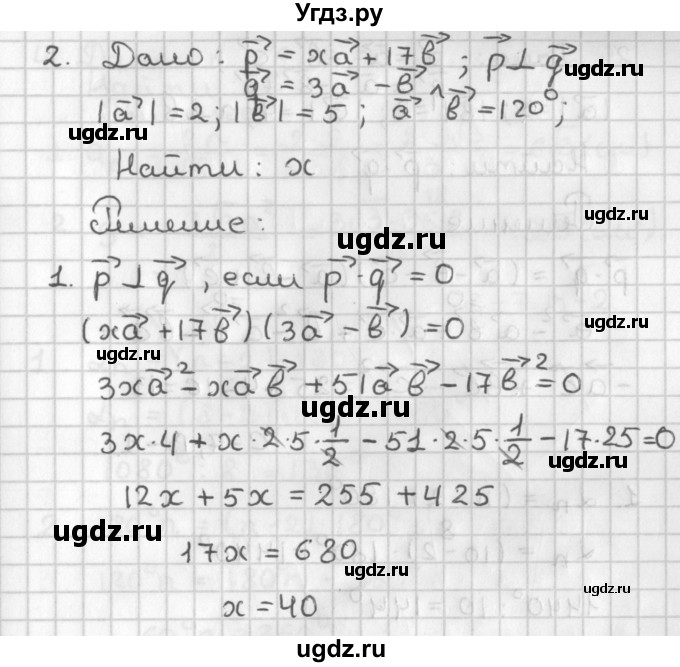 Угдз.ру
2. Дано: p⃗ = xa⃗ + 17b⃗ ; p⃗ ⊥ q⃗
q⃗ = 3a⃗ − b⃗
|a⃗| = 2; |b⃗| = 5; a⃗ ^ b⃗ = 120°;
ugdz.ru ugdz.ru
ugdz.ru
Найти: x
ugdz.ru
Решение:
ugdz.ru
1. p⃗ ⊥ q⃗, если p⃗ · q⃗ = 0
(xa⃗ + 17b⃗)(3a⃗ − b⃗) = 0
ugdz.ru
3xa⃗² − xa⃗b⃗ + 51a⃗b⃗ − 17b⃗² = 0
ugdz.ru
3x·4 + x·2·5·1/2 − 51·2·5·1/2 − 17·25 = 0
ugdz.ru
12x + 5x = 255 + 425
ugdz.ru
17x = 680
ugdz.ru
x = 40
ugdz.ru
ugdz.ru